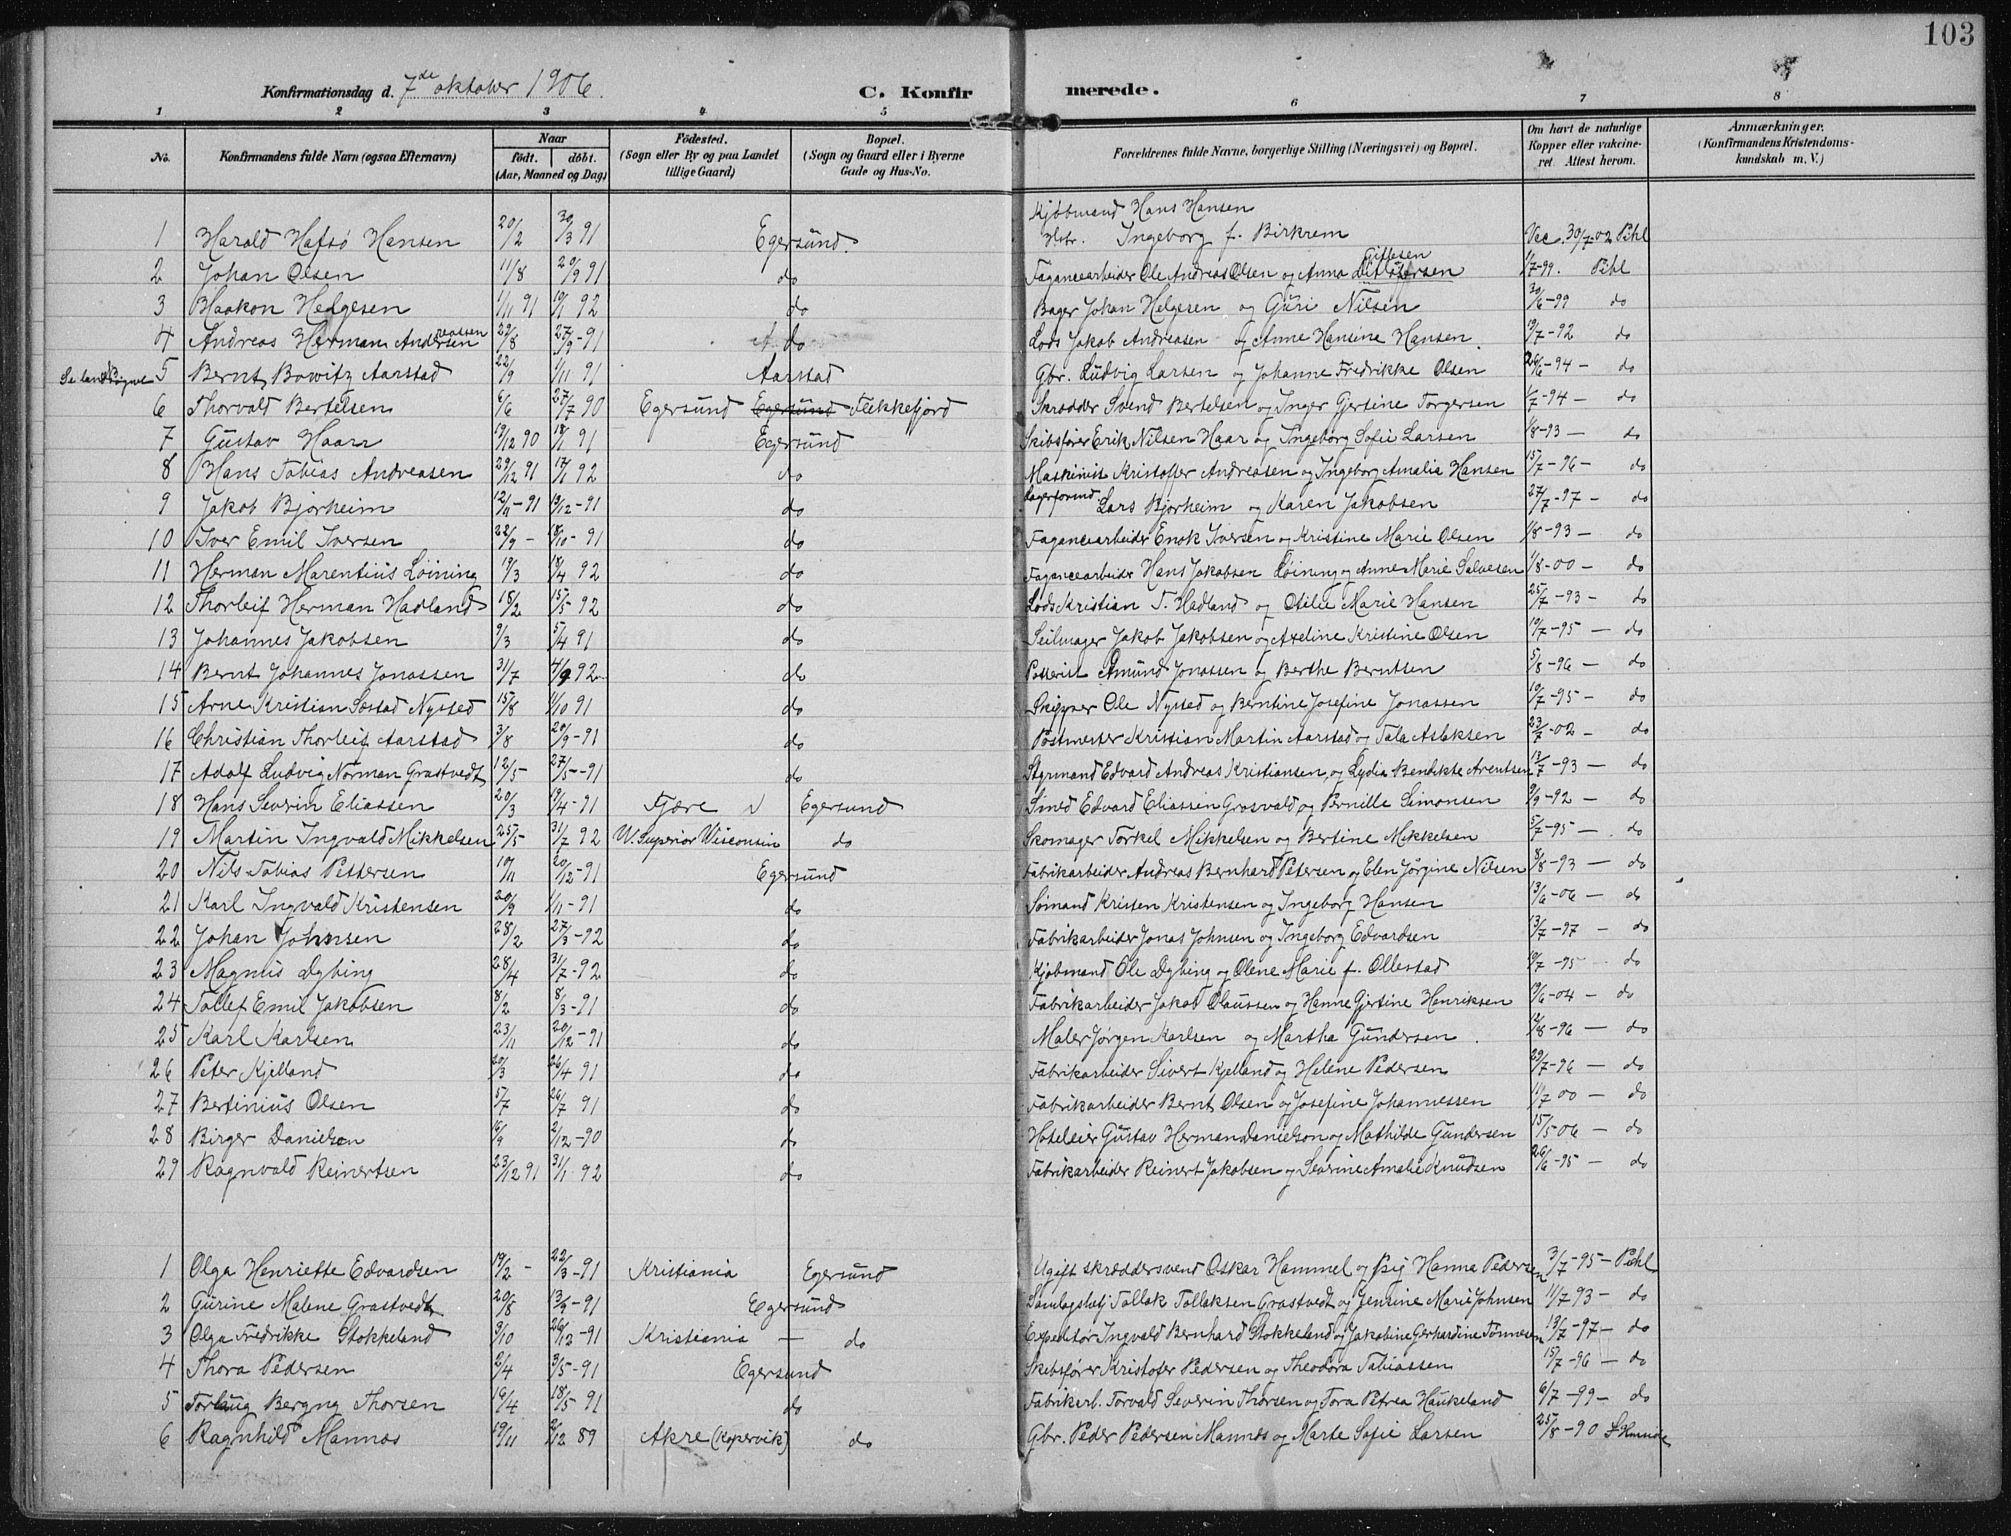 103
Konfirmationsdag d. 7de oktober 1906. C. Konfirmerede.
1 2 3 4 5 6 7 8
No. Konfirmandens fulde Navn (ogsaa Efternavn) Naar født. døbt. (Aar, Maaned og Dag) Fødested. (Sogn eller By og paa Landet tillige Gaard) Bopæl. (Sogn og Gaard eller i Byerne Gade og Hus-No. Forældrenes fulde Navne, borgerlige Stilling (Næringsvei) og Bopæl. Om havt de naturlige Kopper eller vakcineret. Attest herom. Anmærkninger. (Konfirmandens Kristendomskundskab m. V.)
1 Harald Hafsø Hansen 20/2 30/3 91 Egersund. Kjøbmand Hans Hansen Hstr. Ingeborg f. Birkrem Vac. 30/7-02 Pihl
2 Johan Olsen 11/8 20/9 91 do Fagancearbeider Ole Andreas Olsen og Anna Gittesen 1/7-99. Pihl
3 Haakon Helgesen 1/11 91 10/1 92 do Bager Johan Helgesen og Guri Nilsen 30/6-99 do
4 Andreas Herman Andreassen 29/8 27/9-91 do Lods Jakob Andreasen og Anne Hansine Hansen. 19/7-92 do
5 Bernt Bowitz Aarstad 22/9 1/11 91 Aarstad Gbr. Ludvig Larsen og Johanne Fredrikke Olsen 26/6-94 - do
6 Thorvald Bertelsen 6/6 27/7 90 Egersund Egersund Flekkefjord Skrædder Svend Bertelsen og Inger Gjertine Torgersen 1/7-94 - do
7 Gustav Haar 13/12 90 18/1 91 Egersund Skibsfører Erik Nilsen Haar og Ingeborg Sofie Larsen 1/8-93 - do
8 Hans Tobias Andreasen 29/12 91 17/1 92 do Maskinist Kristoffer Andreasen og Ingeborg Amalia Hansen 15/7-96 - do
9 Jakob Bjørheim 12/11-91 13/12-91 do Lagerformd. Lars Bjørheim og Karen Jakobsen 27/7-97 - do
10 Iver Emil Iversen 22/9 - 18/10-91 do Fagancearbeider Enok Iversen og Kristine Marie Olsen 1/8-93 - do
11 Herman Marentius Løining 19/3 18/4 92 do Fagancearbeider Hans Jakobsen Løining og Anne Marie Salvesen 1/8-00 - do
12 Thorleif Herman Hadland 18/2 15/5 92 do Lods Kristian T. Hadland og Otilie Marie Hansen 25/7-93 - do
13 Johannes Jakobsen 9/3 5/4 91 do Seilmager Jakob Jakobsen og Axeline Kristine Olsen 19/7-95 - do
14 Bernt Johannes Jonassen 31/7 4/9 92 do Amund Jonassen og Berthe Berntsen 5/8-96 - do
15 Arne Kristian Nysted 15/8 1/10 91 do Skipper Ole Nysted og Berntine Josefine Jonassen 19/7-95 - do
16 Christian Thorleif Aarstad 3/8 20/9-91 do Postmester Kristian Martin Aarstad og Tala Aslaksen 23/7-02 - do
17 Adolf Ludvig Norman Grastvedt 12/5- 27/5-91 do Styrmand Edvard Andreas Kristiansen og Lydia Bendikte Arentsen 13/7-93 - do
18 Hans Severin Eliassen 20/3 19/4-91 Fjære Egersund Smed Edvard Eliassen Grosvald og Pernille Simonsen 9/9-92 - do
19 Martin Ingvald Mikkelsen 25/5 31/7 92 W. Superior Wisconsin do Skomager Torkel Mikkelsen og Bertine Mikkelsen 5/7-95 - do
20 Nils Tobias Pettersen 10/11 20/12-91 Egersund Fabrikarbeider Andreas Bernhard Petersen og Elen Jørgine Nilsen 8/8-93 - do
21 Karl Ingvald Kristensen 20/9 1/11-91 do Sømand Kristen Kristensen og Ingeborg Hansen 13/6-06 - do
22 Johan Johnsen 28/2 27/3-92 do Fabrikarbeider Jonas Johnsen og Ingeborg Edvardsen 13/7-97 - do
23 Magnus Dybing 28/4 31/7-92 do Kjøbmand Ole Dybing og Olene Marie f. Ollestad 19/7-95 - do
24 Tollef Emil Jakobsen 8/2 8/3-91 do Fabrikarbeider Jakob Olaussen og Hanne Gjertine Henriksen 19/6-04 - do
25 Karl Karlsen 23/11 20/12-91 do Maler Jørgen Karlsen og Martha Gundersen. 12/8-96 - do
26 Peter Kjelland 20/3 26/4 91 do Fabrikarbeider Sivert Kjelland og Helene Pedersen 29/7-96 - do
27 Bertinius Olsen 5/7 26/7 91 do Fabrikarbeider Bernt Olsen og Josefine Johannessen 11/7 00 - do
28 Birger Danielsen 16/9 2/12-90 do Hoteleier Gustav Herman Danielson og Mathilde Gundersen 15/5 06 - do
29 Ragnvald Reinertsen 23/12 91 31/1 92 do Fabrikarbeider Reinert Jakobsen og Severine Amalie Knudsen 26/6-95 - do
1 Olga Henriette Edvardsen 19/2 - 22/3-91 Kristiania Egersund Ugift skræddersvend Oskar Hammel og Pig Hanna Pedersen 3/7-95 - Pihl
2 Gurine Malene Grastvedt 20/8 13/9-91 Egersund Tollak Tollaksen Grastvedt og Jensine Marie Johnsen 11/7 93 - do
3 Olga Fredrikke Stokkeland 9/10 26/12-91 Kristiania - do Expeditør Ingvald Bernhard Stokkeland og Jakobine Gerhardine Tønnesen 13/7-97 - do
4 Thora Pedersen 2/4 3/5-91 Egersund Skibsfører Kristofer Pedersen og Theodora Tobiassen 15/7-96 - do
5 Torlaug Bergny Thorsen 16/4 18/5-91 do Fabrikarb. Torvald Severin Thorsen og Tora Petrea Haukeland 6/7-99 - do
6 Ragnhild Mannas 19/11 2/12 89 Akre (Kopervik) do Gbr. Peder Pedersen Mannes og Marte Sofie Larsen 25/8-90